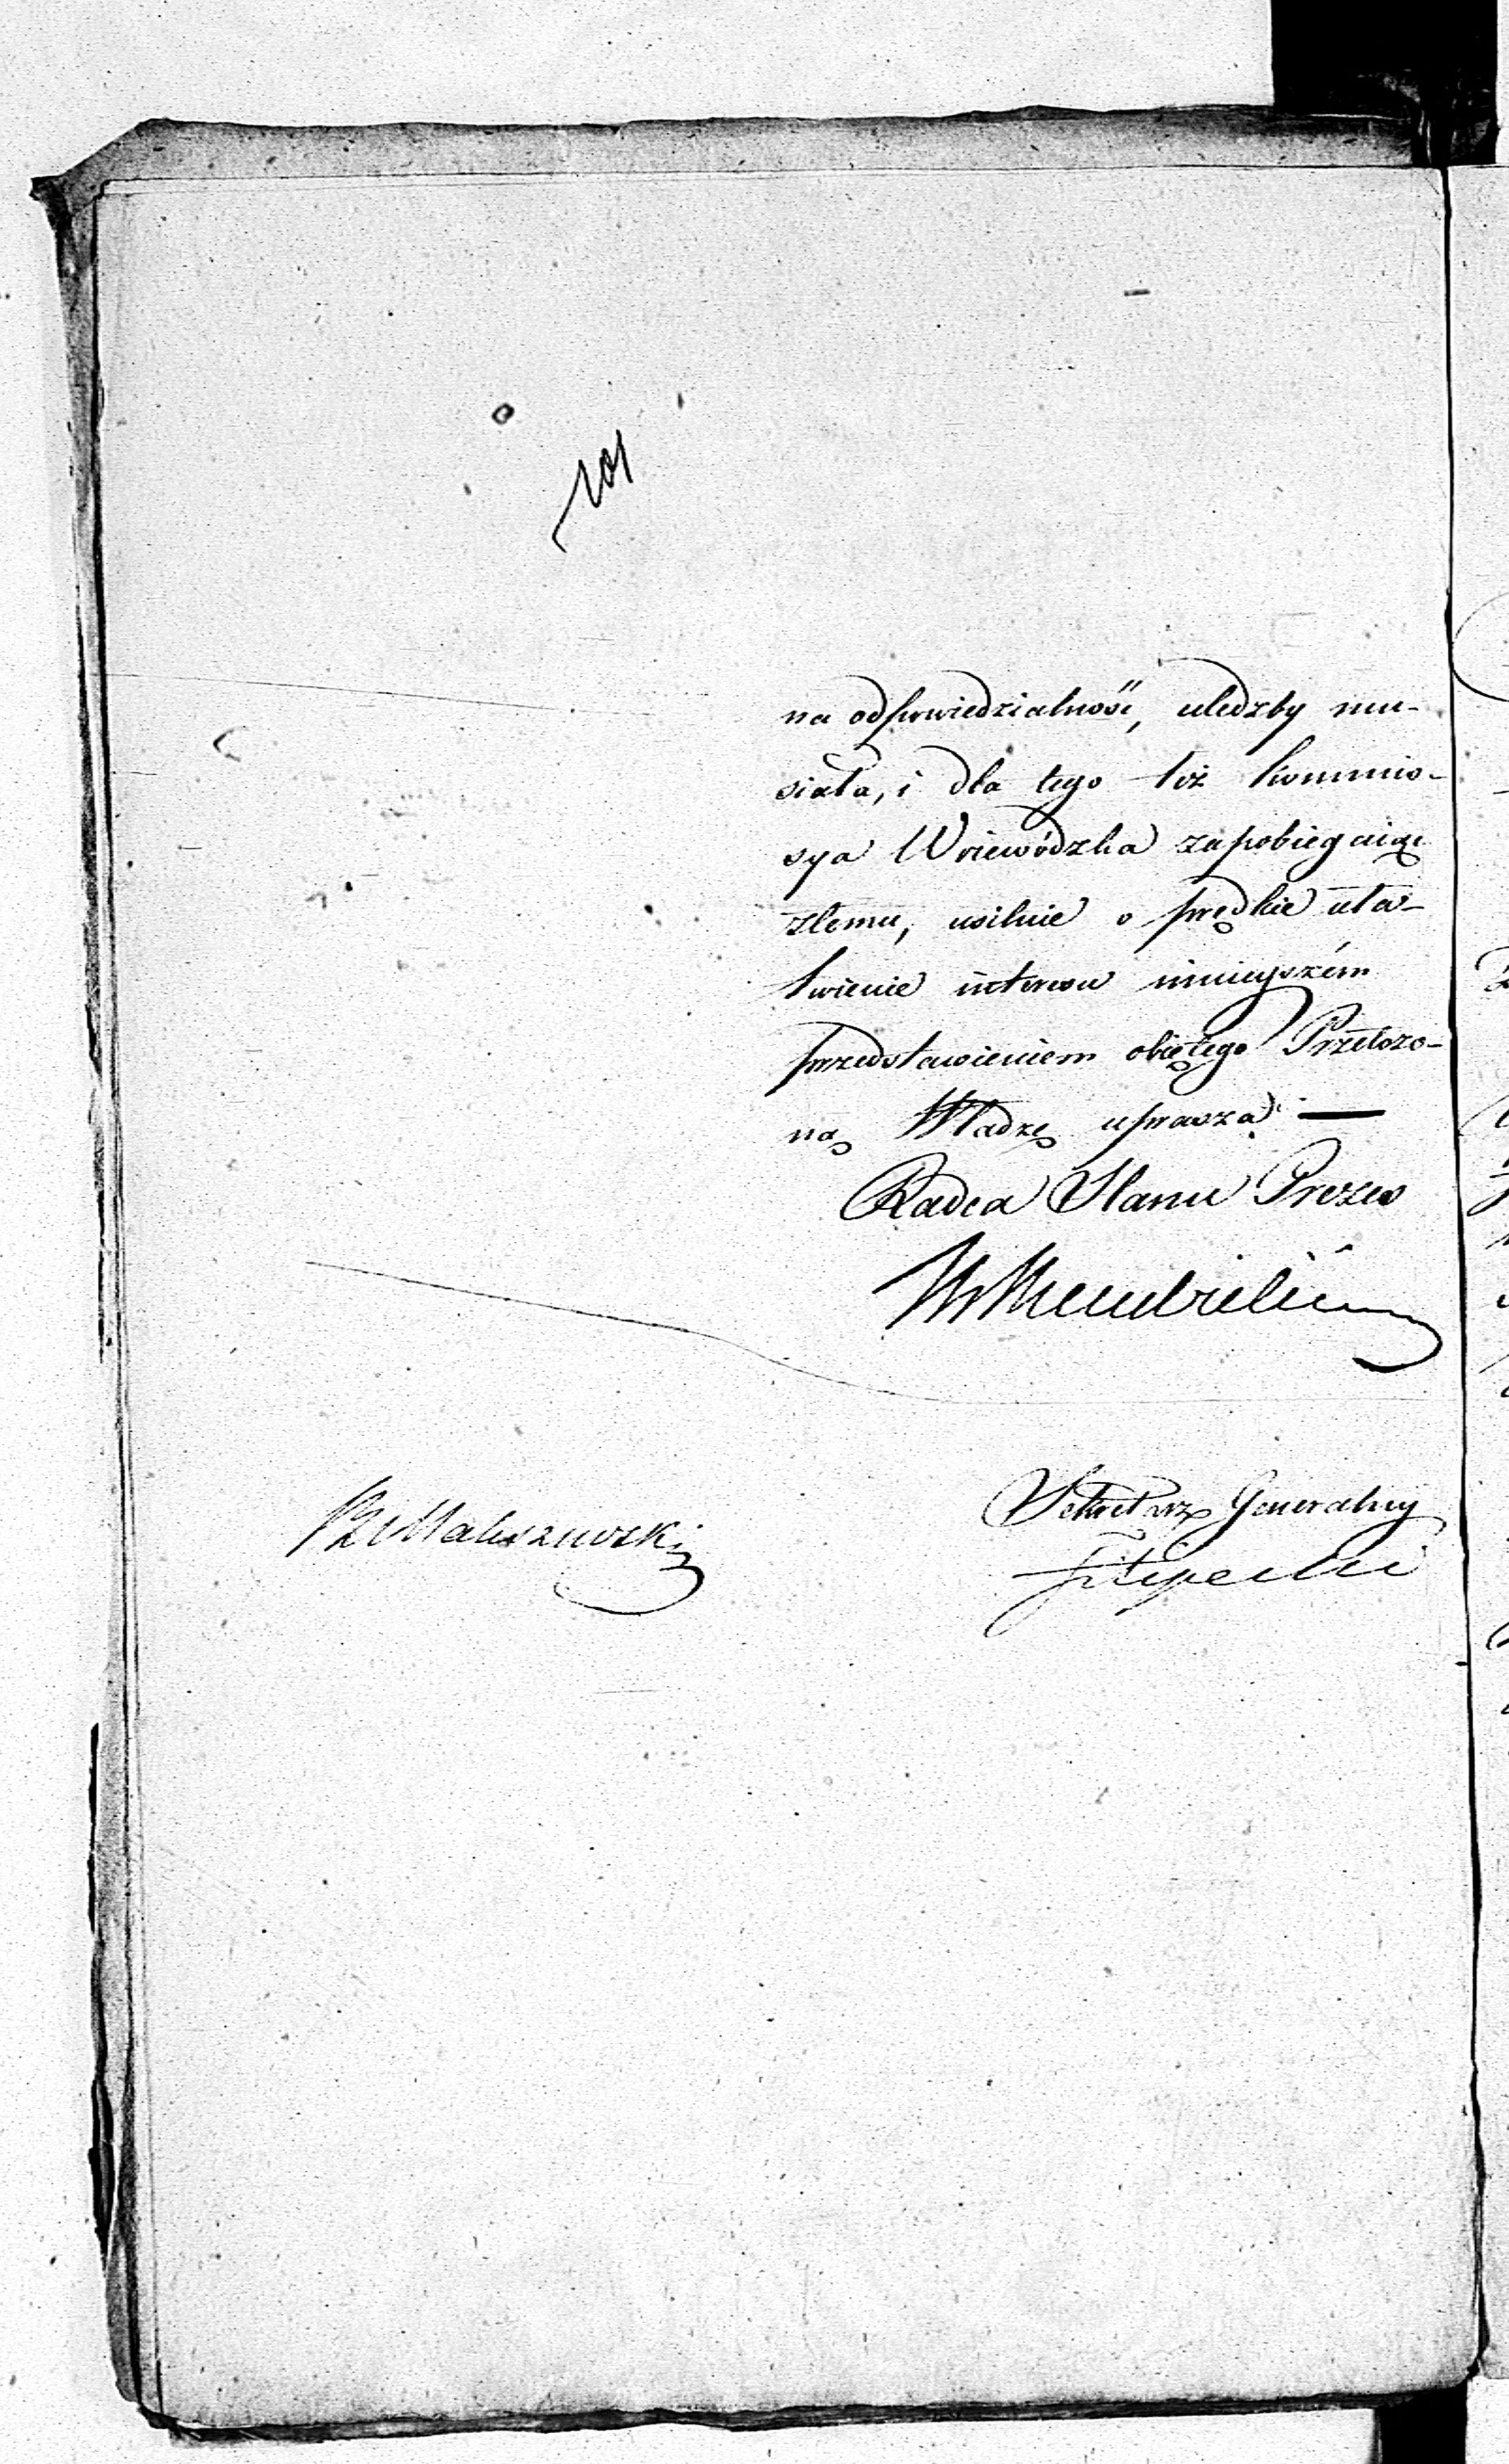 101
na odpowiedzialność, uledzby mu-
siała, i dla tego też Kommis-
sya Woiewódzka zapobiegaiąc
złemu, usilnie o prędkie uła-
twienie interesu ninieyszém
przedstawieniem obiętego Przełożo-
ną Władzę uprasza. —
Radca Stanu Prezes
Sekretarz Generalny
Filipecki